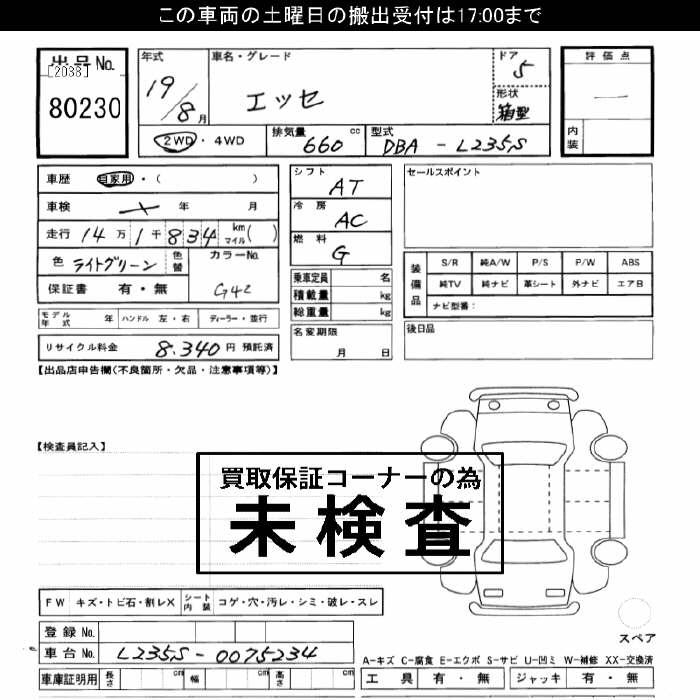 この車両の土曜日の搬出受付は17:00まで
出品No.
[2038]
80230
年式
19/8月
車名・グレード
エッセ
ドア
5
形状
箱型
評価点
―
内装
2WD・4WD
排気量 660 cc
型式 DBA - L235S
車歴 自家用・( )
車検 年 月
走行 14万1千834 km マイル( )
色 ライトグリーン 色替
カラーNo.
G42
保証書 有・無
モデル年式 年 ハンドル 左・右 ディーラー・並行
リサイクル料金 8,340円 預託済
シフト AT
冷房 AC
燃料 G
乗車定員 名
積載量 kg
総重量 kg
名変期限
月 日
セールスポイント
装備品
S/R 純A/W P/S P/W ABS
純TV 純ナビ 革シート 外ナビ エアB
ナビ型番:
後日品
【出品店申告欄(不良箇所・欠品・注意事項等)】
【検査員記入】
買取保証コーナーの為
未検査
FW キズ・トビ石・割レX シート内装 コゲ・穴・汚レ・シミ・破レ・スレ
スペア
登録No.
車台No. L235S-0075234
車庫証明用 長さ cm 幅 cm 高さ cm
A-キズ C-腐食 E-エクボ S-サビ U-凹ミ W-補修 XX-交換済
工具 有・無 ジャッキ 有・無